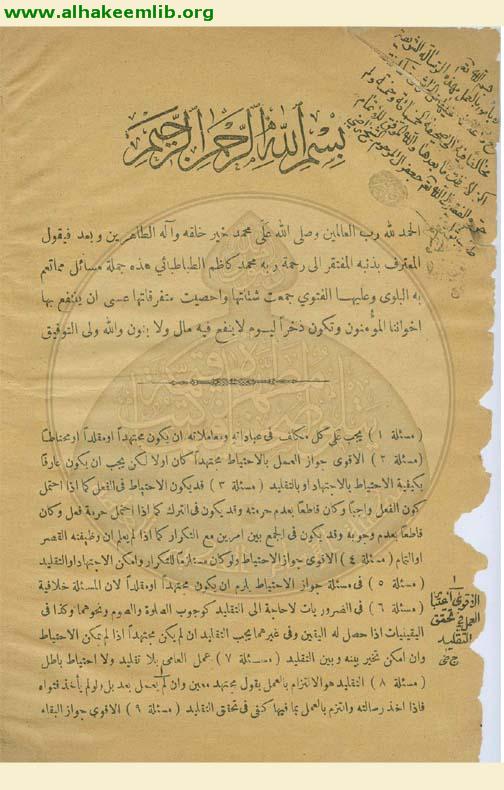 www.alhakeemlib.org
بسم الله الرحمن الرحيم
الحمد لله رب العالمين وصلى الله على محمد خير خلقه وآله الطاهرين وبعد فيقول
المعترف بذنبه المفتقر الى رحمة ربه محمد كاظم الطباطبائي هذه جملة مسائل مما تعم
به البلوى وعليها الفتوى جمعت شتاتها واحصيت متفرقاتها عسى ان ينتفع بها
اخواننا المؤمنون وتكون ذخراً ليوم لا ينفع فيه مال ولا بنون والله ولى التوفيق
( مسئلة ١ ) يجب على كل مكلف فى عباداته ومعاملاته ان يكون مجتهداً او مقلداً او محتاطاً
( مسئلة ٢ ) الاقوى جواز العمل بالاحتياط مجتهداً كان اولا لكن يجب ان يكون عارفاً
بكيفية الاحتياط بالاجتهاد او بالتقليد ( مسئلة ٣ ) قد يكون الاحتياط فى الفعل كما اذا احتمل
كون الفعل واجباً وكان قاطعاً بعدم حرمته وقد يكون فى الترك كما اذا احتمل حرمة فعل وكان
قاطعاً بعدم وجوبه وقد يكون فى الجمع بين امرين مع التكرار كما اذا لم يعلم ان وظيفته القصر
او التمام ( مسئلة ٤ ) الاقوى جواز الاحتياط ولو كان مستلزماً للتكرار وامكن الاجتهاد او التقليد
( مسئلة ٥ ) فى مسئلة جواز الاحتياط يلزم ان يكون مجتهداً او مقلداً لان المسئلة خلافية
( مسئلة ٦ ) فى الضروريات لا حاجة الى التقليد كوجوب الصلوة والصوم ونحوهما وكذا فى
اليقينيات اذا حصل له اليقين وفى غيرهما يجب التقليد ان لم يكن مجتهداً اذا لم يمكن الاحتياط
وان امكن تخير بينه وبين التقليد ( مسئلة ٧ ) عمل العامى بلا تقليد ولا احتياط باطل
( مسئلة ٨ ) التقليد هو الالتزام بالعمل بقول مجتهد معين وان لم يعمل بعد بل ولو لم يأخذ فتواه
فاذا اخذ رسالته والتزم بالعمل بما فيها كفى فى تحقق التقليد ( مسئلة ٩ ) الاقوى جواز البقاء
١
الاقوى اعتبار
العمل فى تحقق
التقليد